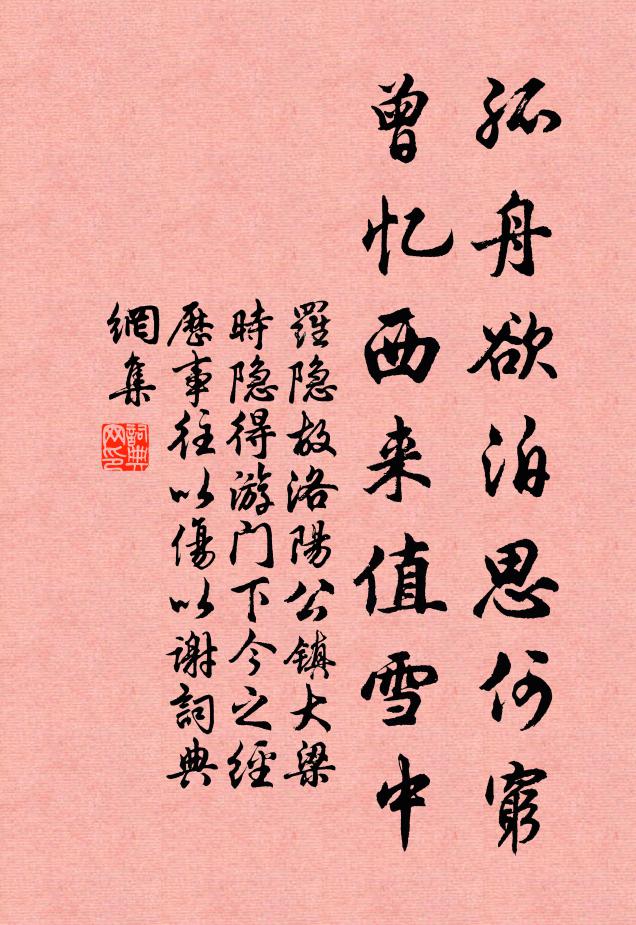 孤舟欲泊思何穷
曾忆西来值雪中
羅隐故洛陽公镇大梁
時隐得游门下今之經
歷事往以傷以谢詞典
網集
詞典
网印